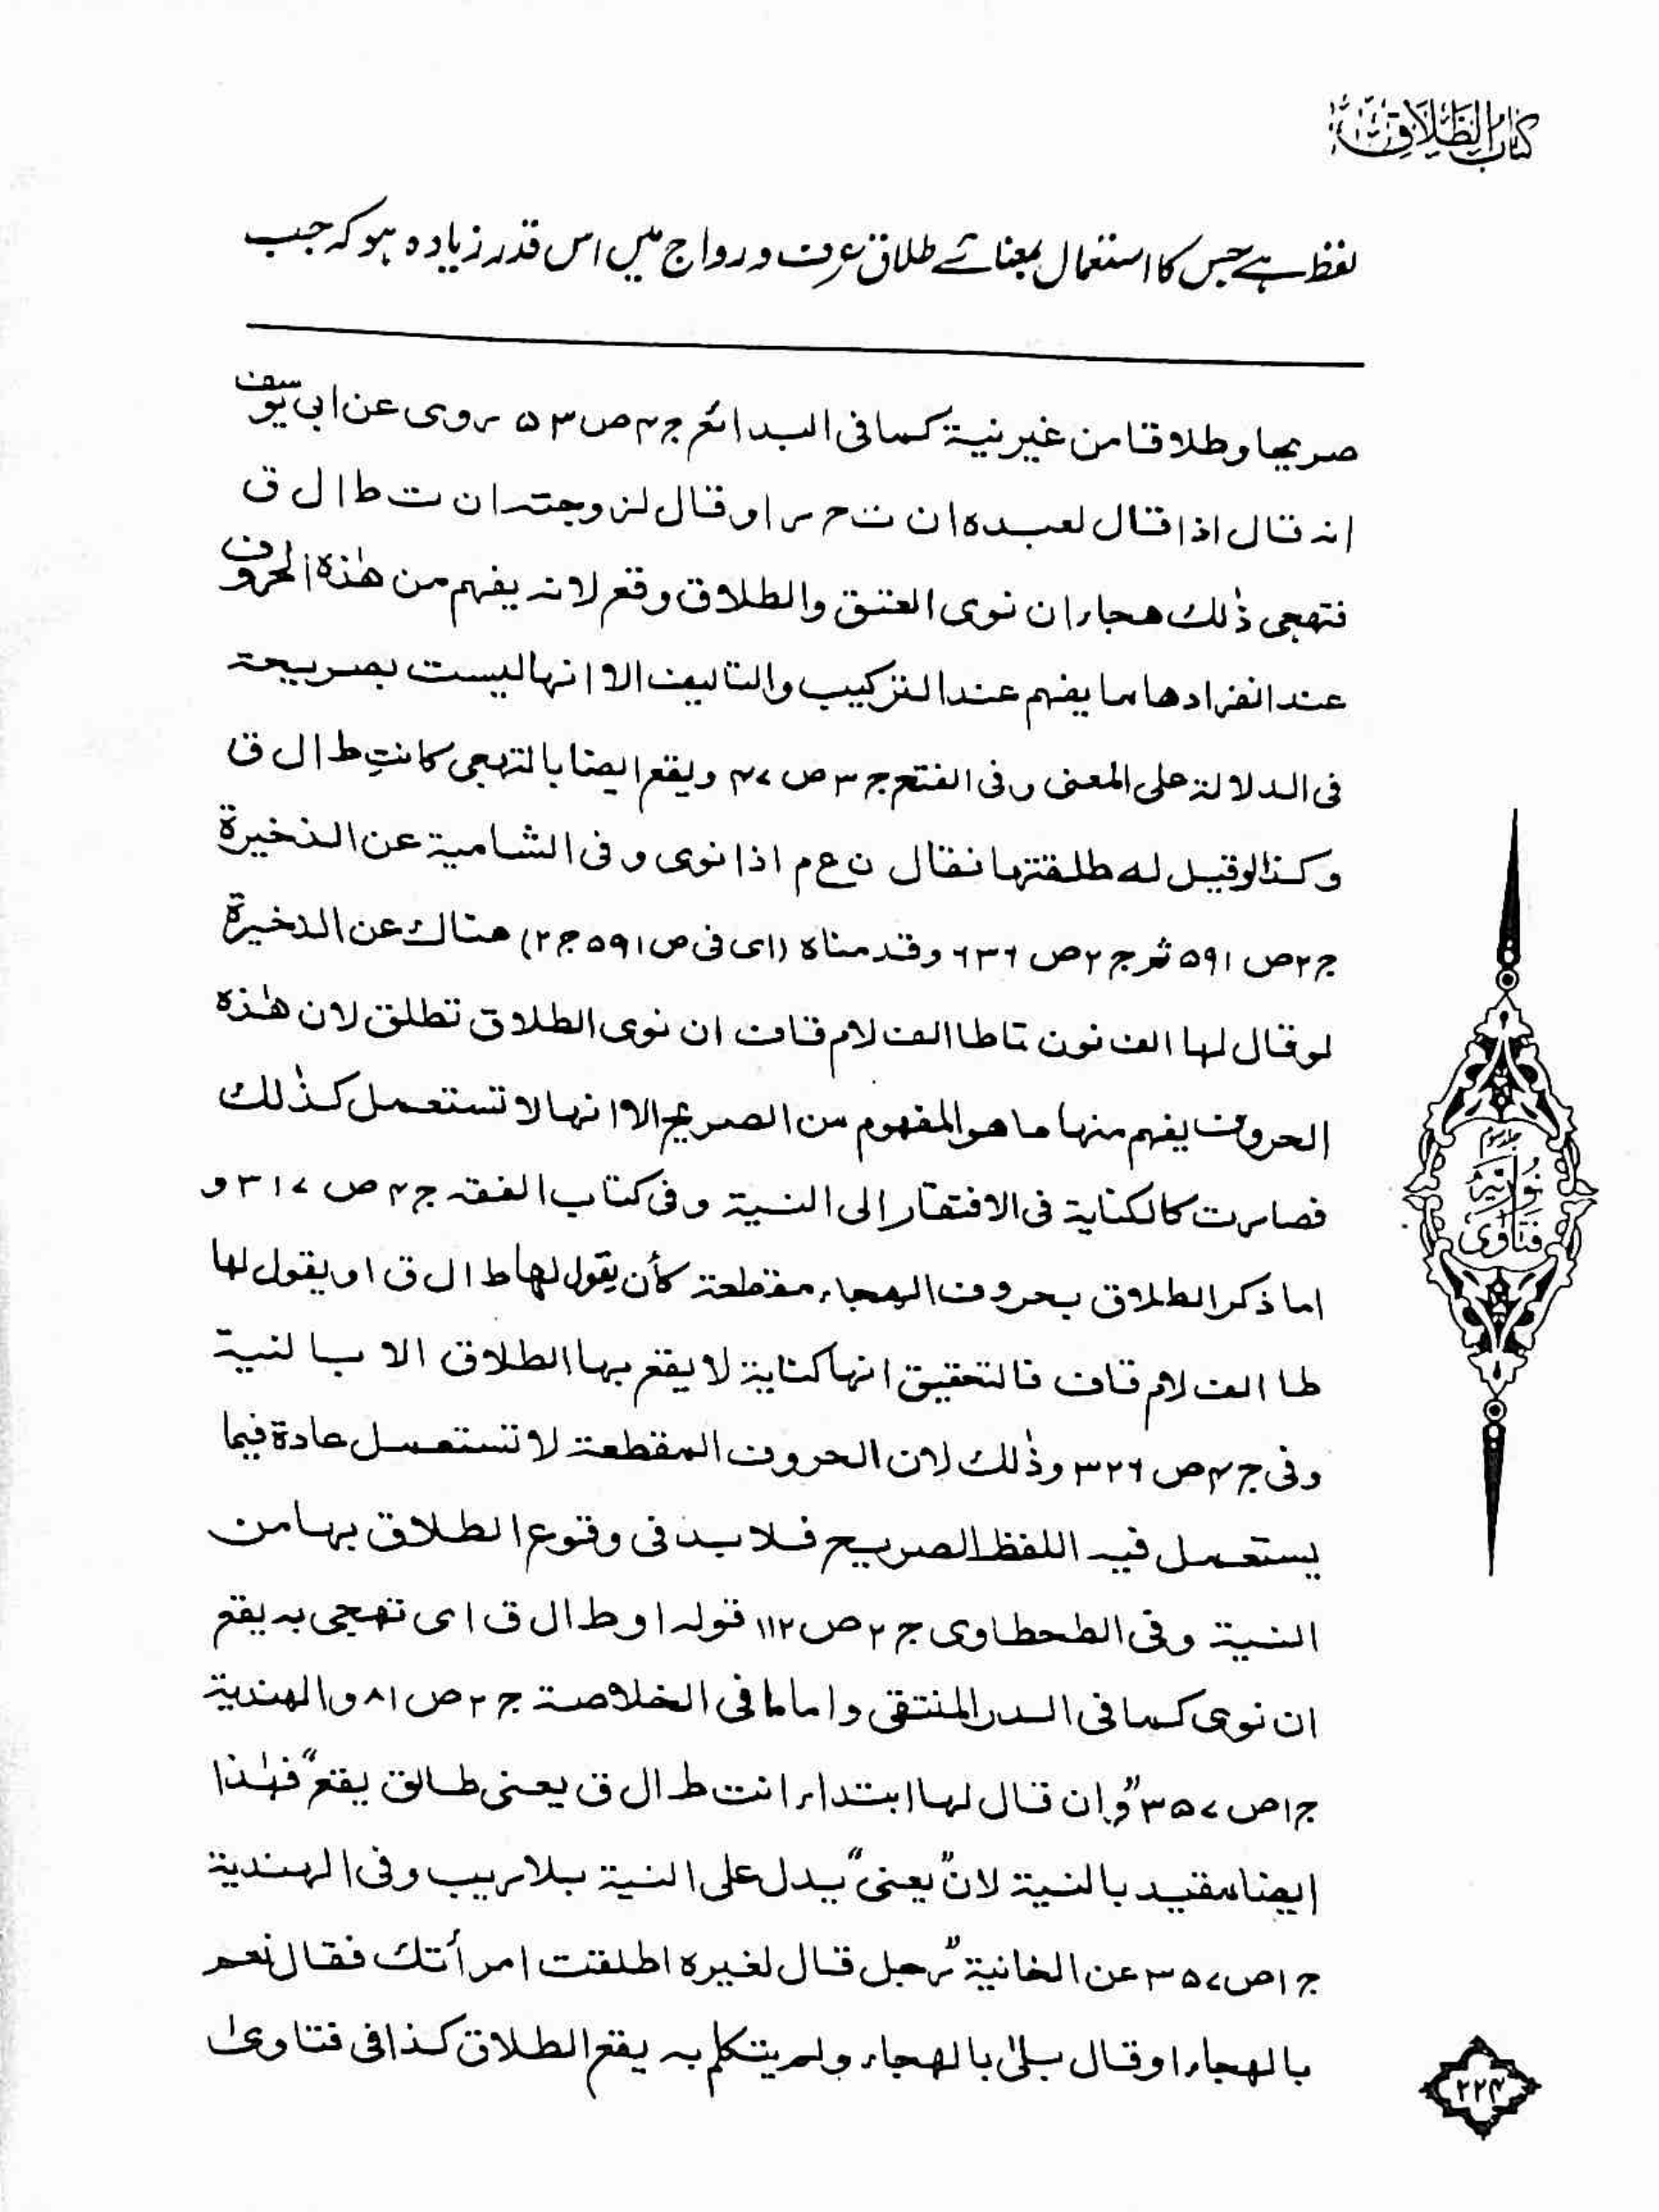 کتاب الطلاق
لفظ ہے جس کا استعمال بمعنائے طلاق عرف و رواج میں اس قدر زیادہ ہو کہ جب
صریحا وطلاقا من غیر نیۃ کما فی البدائع ج ۴ ص ۵۳ روی عن ابی یوسف
انہ قال اذا قال لعبدہ ان ت ح ر او قال لزوجتہ ان ت ط ا ل ق
فتھجی ذٰلك ھجاء ان نوی العتق والطلاق وقع لانہ یفہم من ھٰذہ الحروف
عند انفرادھا ما یفہم عند الترکیب والتالیف الا انھا لیست بصریحۃ
فی الدلالۃ علی المعنی وفی الفتح ج ۳ ص ۴۷ ویقع ایضا بالتہجی کانتِ ط ا ل ق
وکذا لو قیل لہ طلقتہا فقال ن ع م اذا نوی وفی الشامیۃ عن الذخیرۃ
ج ۲ ص ۵۹۱ ثم ج ۲ ص ۶۳۶ وقدمناہ (ای فی ص ۵۹۱ ج ۲) ھناك عن الذخیرۃ
لو قال لہا الف نون تا طا الف لام قاف ان نوی الطلاق تطلق لان ھٰذہ
الحروف یفہم منہا ما ھو المفہوم من الصریح الا انہا لا تستعمل کذٰلك
فصارت کالکنایۃ فی الافتقار الی النیۃ وفی کتاب الفقہ ج ۴ ص ۳۱۷ و
اما ذکر الطلاق بحروف الہجاء مقطعۃ کأن یقول لھا ط ا ل ق او یقول لھا
طا الف لام قاف فالتحقیق انہا کنایۃ لا یقع بہا الطلاق الا بالنیۃ
وفی ج ۴ ص ۳۲۶ وذٰلك لان الحروف المقطعۃ لا تستعمل عادۃ فیما
یستعمل فیہ اللفظ الصریح فلا بد فی وقوع الطلاق بہا من
النیۃ وفی الطحطاوی ج ۲ ص ۱۱۲ قولہ او ط ا ل ق ای تھجی بہ یقع
ان نوی کما فی الدر المنتقی واما ما فی الخلاصۃ ج ۲ ص ۸۱ والھندیۃ
ج ۱ ص ۳۵۷ "وان قال لہا ابتداء انت ط ا ل ق یعنی طالق یقع" فہٰذا
ایضا مقید بالنیۃ لان "یعنی" یدل علی النیۃ بلا ریب وفی الہندیۃ
ج ۱ ص ۳۵۷ عن الخانیۃ "رجل قال لغیرہ اطلقت امرأتك فقال نعم
بالھجاء او قال بلیٰ بالھجاء ولم یتکلم بہ یقع الطلاق کذا فی فتاویٰ
فتاویٰ نوریہ
۲۲۴